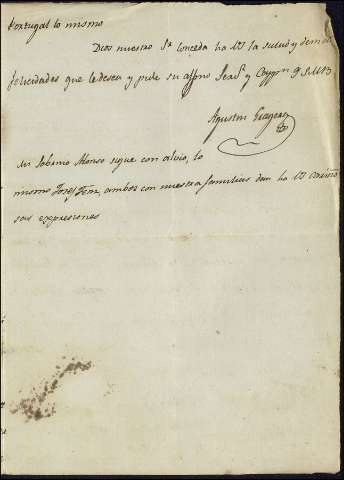 Portugal lo mismo
Dios nuestro Sr conceda ha VS la salud y demas
felicidades que le desea y pide su affmo Serdr y Cappn Q S M B
Agustin
Mi Sobrino Alonso sigue con alivio, lo
mismo Josef Ferz, ambos con nuestra familias dan ha VS
sus expresiones